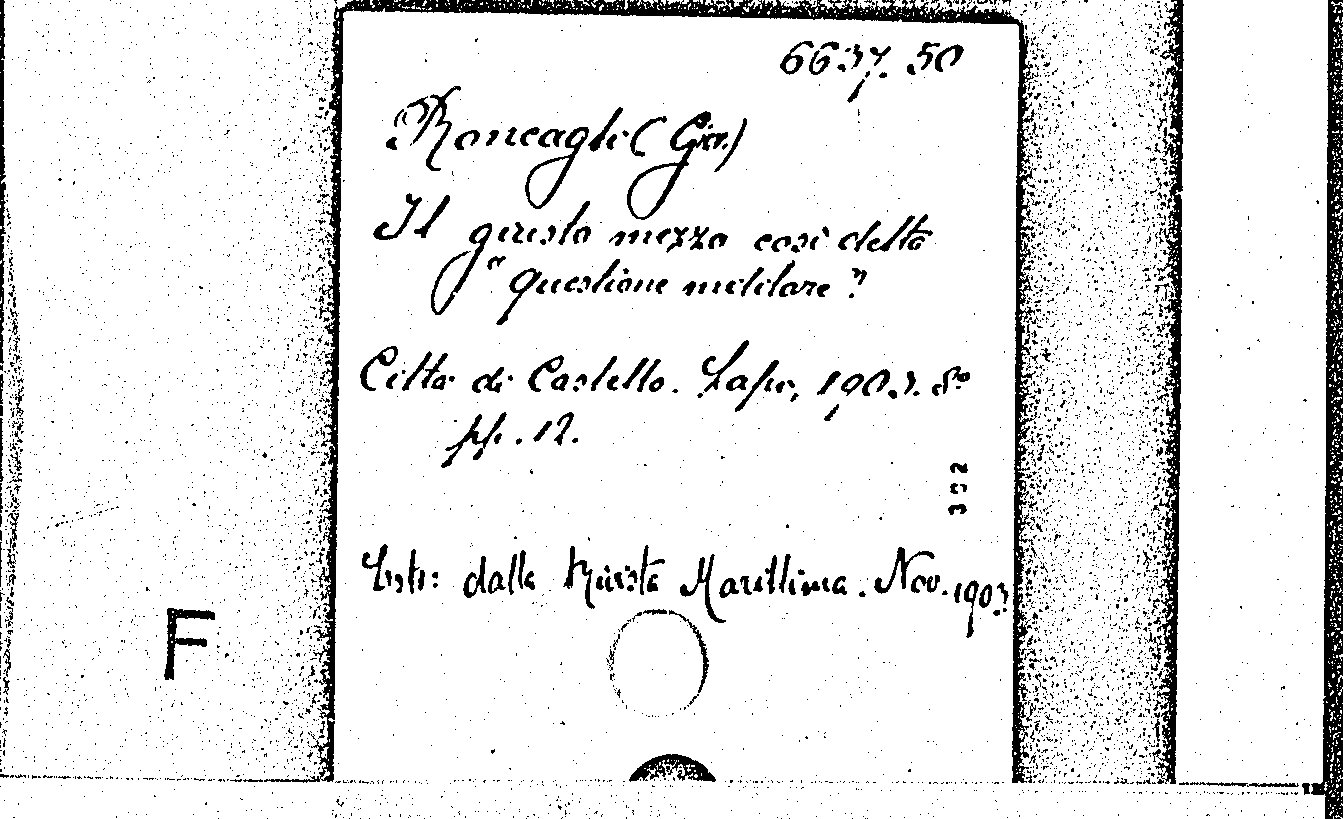 6637. 50
Roncagli (Giov.)
Il giusto mezzo così detto
"questione militare"?
Città di Castello. Lapi, 1903. 8º
pp. 12.
352
Estr: dalla Rivista Marittima. Nov. 1903
F